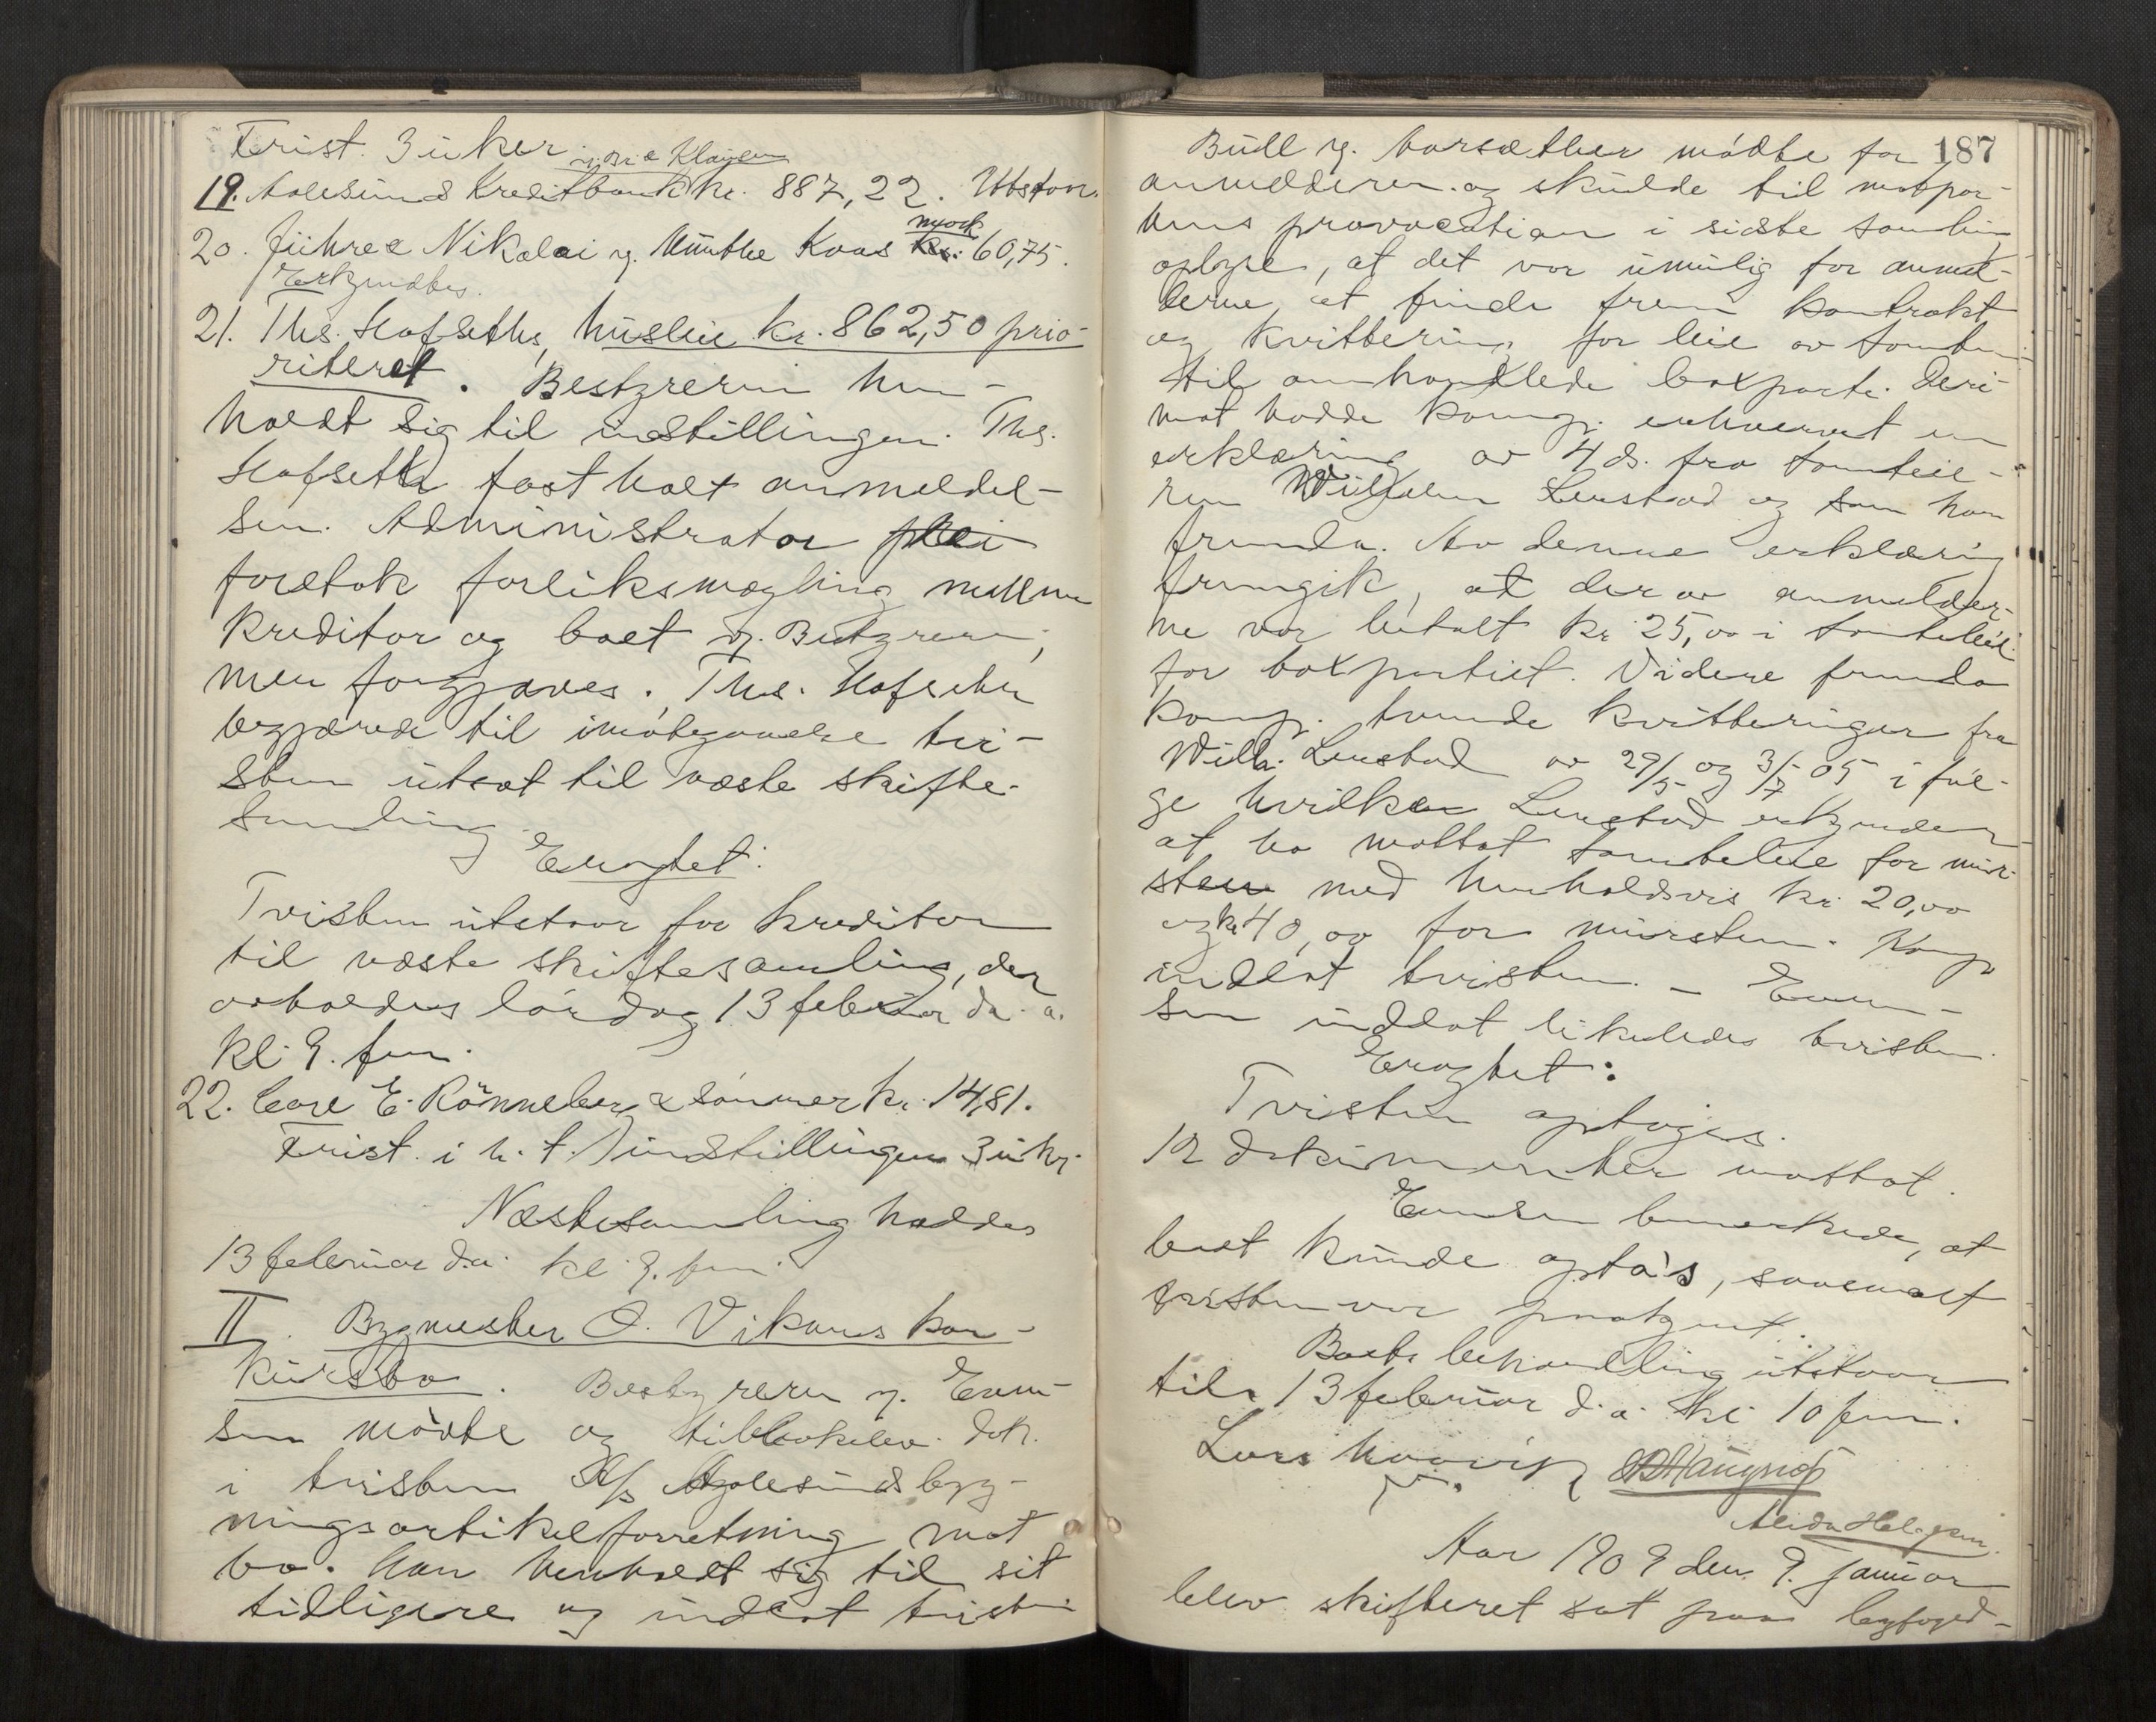 Frist. 3 uker
19. Aalesunds Kreditbank kr. 887,22. Utstaar.
20. Führer Nikolai v. Munthe Kaas kr. 60,75.
Erkjendtes.
21. Ths. Hofseths, husleie kr. 862,50 prio-
riteret. Bestyreren hen-
holdt sig til indstillingen. Ths.
Hofseth fastholdt anmeldel-
sen. Administrator
foretok forliksmægling mellem
kreditor og boet v. Bestyreren,
men forgjæves. Ths. Hofseth
begjærede til imøtegaaelse tvi-
sten utsat til næste skifte-
samling
Eragtet:
Tvisten utstaar for kreditor
til næste skiftesamling, der
avholdes lørdag 13 februar d. a.
kl. 9. fm.
22. Carl E. Rönneberg & sønner kr. 14,81.
Frist. i h. t. indstillingen 3 uker
Næste samling holdes
13 februar d.a. kl. 9. fm.
II. Bygmester O. Vikans kon-
kursbo. Bestyreren v. Even-
sen mødte og tilbakelev. dok.
i tvisten A/s Aalesunds byg-
ningsartikelforretning mot
bo. Han henholdt sig til sit
tidligere og indlot tvisten
187
Bull v. Vorsæther mødte for
anmelderen og skulde til motpar-
tens provocation i sidste samling
oplyse, at det var umulig for anmel-
derne at finde frem kontrakt
og kvittering for leie av tomten
til omhandlede parti. Deri-
mot hadde komp. erhvervet en
erklæring av 4 ds. fra tomteeie-
ren Wilhelm Lenstad og som han
fremla. Av denne erklæring
fremgik, at der av anmelder-
ne var betalt kr. 25,00 i tomteleie
for partiet. Videre fremla
komp. tvende kvitteringer fra
Wilh. Lenstad av 29/5 og 3/7 05 i føl-
ge hvilke Lenstad erkjender
at ha mottat tomteleie for mur-
sten med henholdsvis kr. 20,00
og kr 40,00 for mursten. Komp
indlot tvisten. – Even-
sen indlot likeledes tvisten.
Eragtet:
Tvisten optages.
12 dokumenter mottat.
Evensen bemerkede, at
boet kunde optas, saasnart
tvisten var
Boets behandling utstaar
til 13 februar d. a. kl 10 fm.
Lars
Aar 1909 den 9. januar
blev skifteret sat paa byfoged-